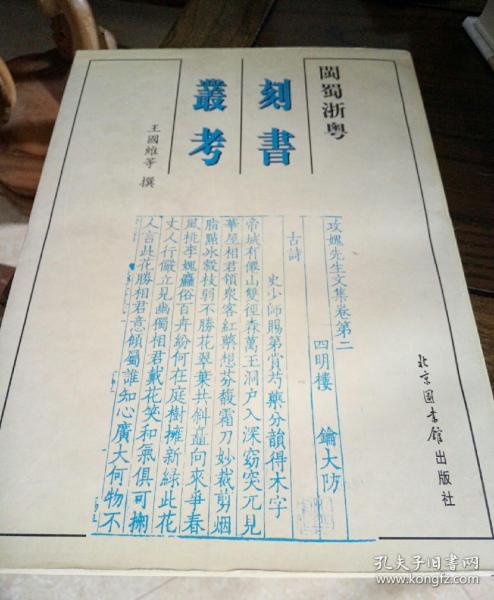 閩蜀浙粵
刻書
叢考
王國維等 撰
攻媿先生文集卷第二
四明樓 鑰大防
古詩
史少師賜第賞芍藥分韻得木字
帝城有僊山雙徑森萬玉洞戶入深窈突兀見
華屋相君領衆客紅藥想芬馥霜刀妙裁剪烟
脂點冰縠枝弱不勝花翠葉共斜矗向來爭春
風桃李媿麤俗百卉紛何在庭樹擁新綠此花
丈人行儼立見幽獨相君戴花笑和氣俱可掬
人言此花勝相君意傾屬誰知心廣大何物不
北京圖書館出版社
孔夫子旧书网
www.kongfz.com